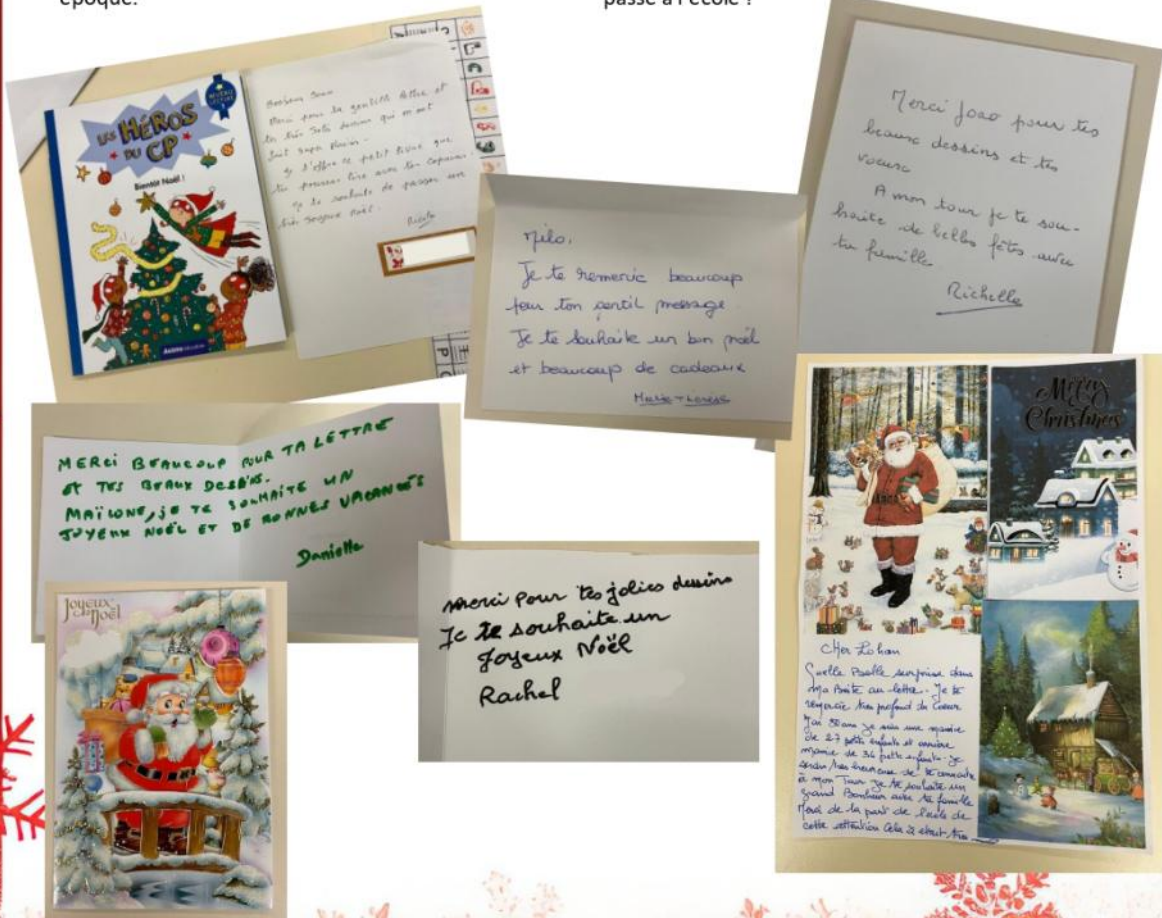 époque.
passé à l'école ?
LES HÉROS
DU CP
Bientôt Noël !
Merci pour ta gentille lettre et
tes très jolis dessins qui m'ont
fait super plaisir.
je t'offre ce petit livre que
tu pourras lire avec ton
je te souhaite de passer un
très joyeux noël.
Milo,
Je te remercie beaucoup
pour ton gentil message.
Je te souhaite un bon noël
et beaucoup de cadeaux
Marie-Thérèse
Merci Joao pour tes
beaux dessins et tes
voeux
A mon tour je te sou-
haite de belles fêtes avec
ta famille
Richelle
MERCi BEAUCOUP POUR TA LETTRE
ET TES BEAUX DESSINS.
MAÏLONE, je TE SOUHAITE UN
JOYEUX NOËL ET DE BONNES VACANCES
Danielle
Joyeux
Noël
merci pour tes jolies dessins
Je te souhaite un
Joyeux Noël
Rachel
Merry
Christmas
cher Lohan
Quelle Belle surprise dans
ma Boite au lettre. Je te
remercie profond du Coeur
J'ai ans je suis une mamie
de 27 petits enfants et arrière
mamie de 36 petits enfants. je
serais très heureuse de te connaitre
à mon Tour je te souhaite un
grand Bonheur avec ta famille
Merci de la part de l'école de
cette attention Cela était très